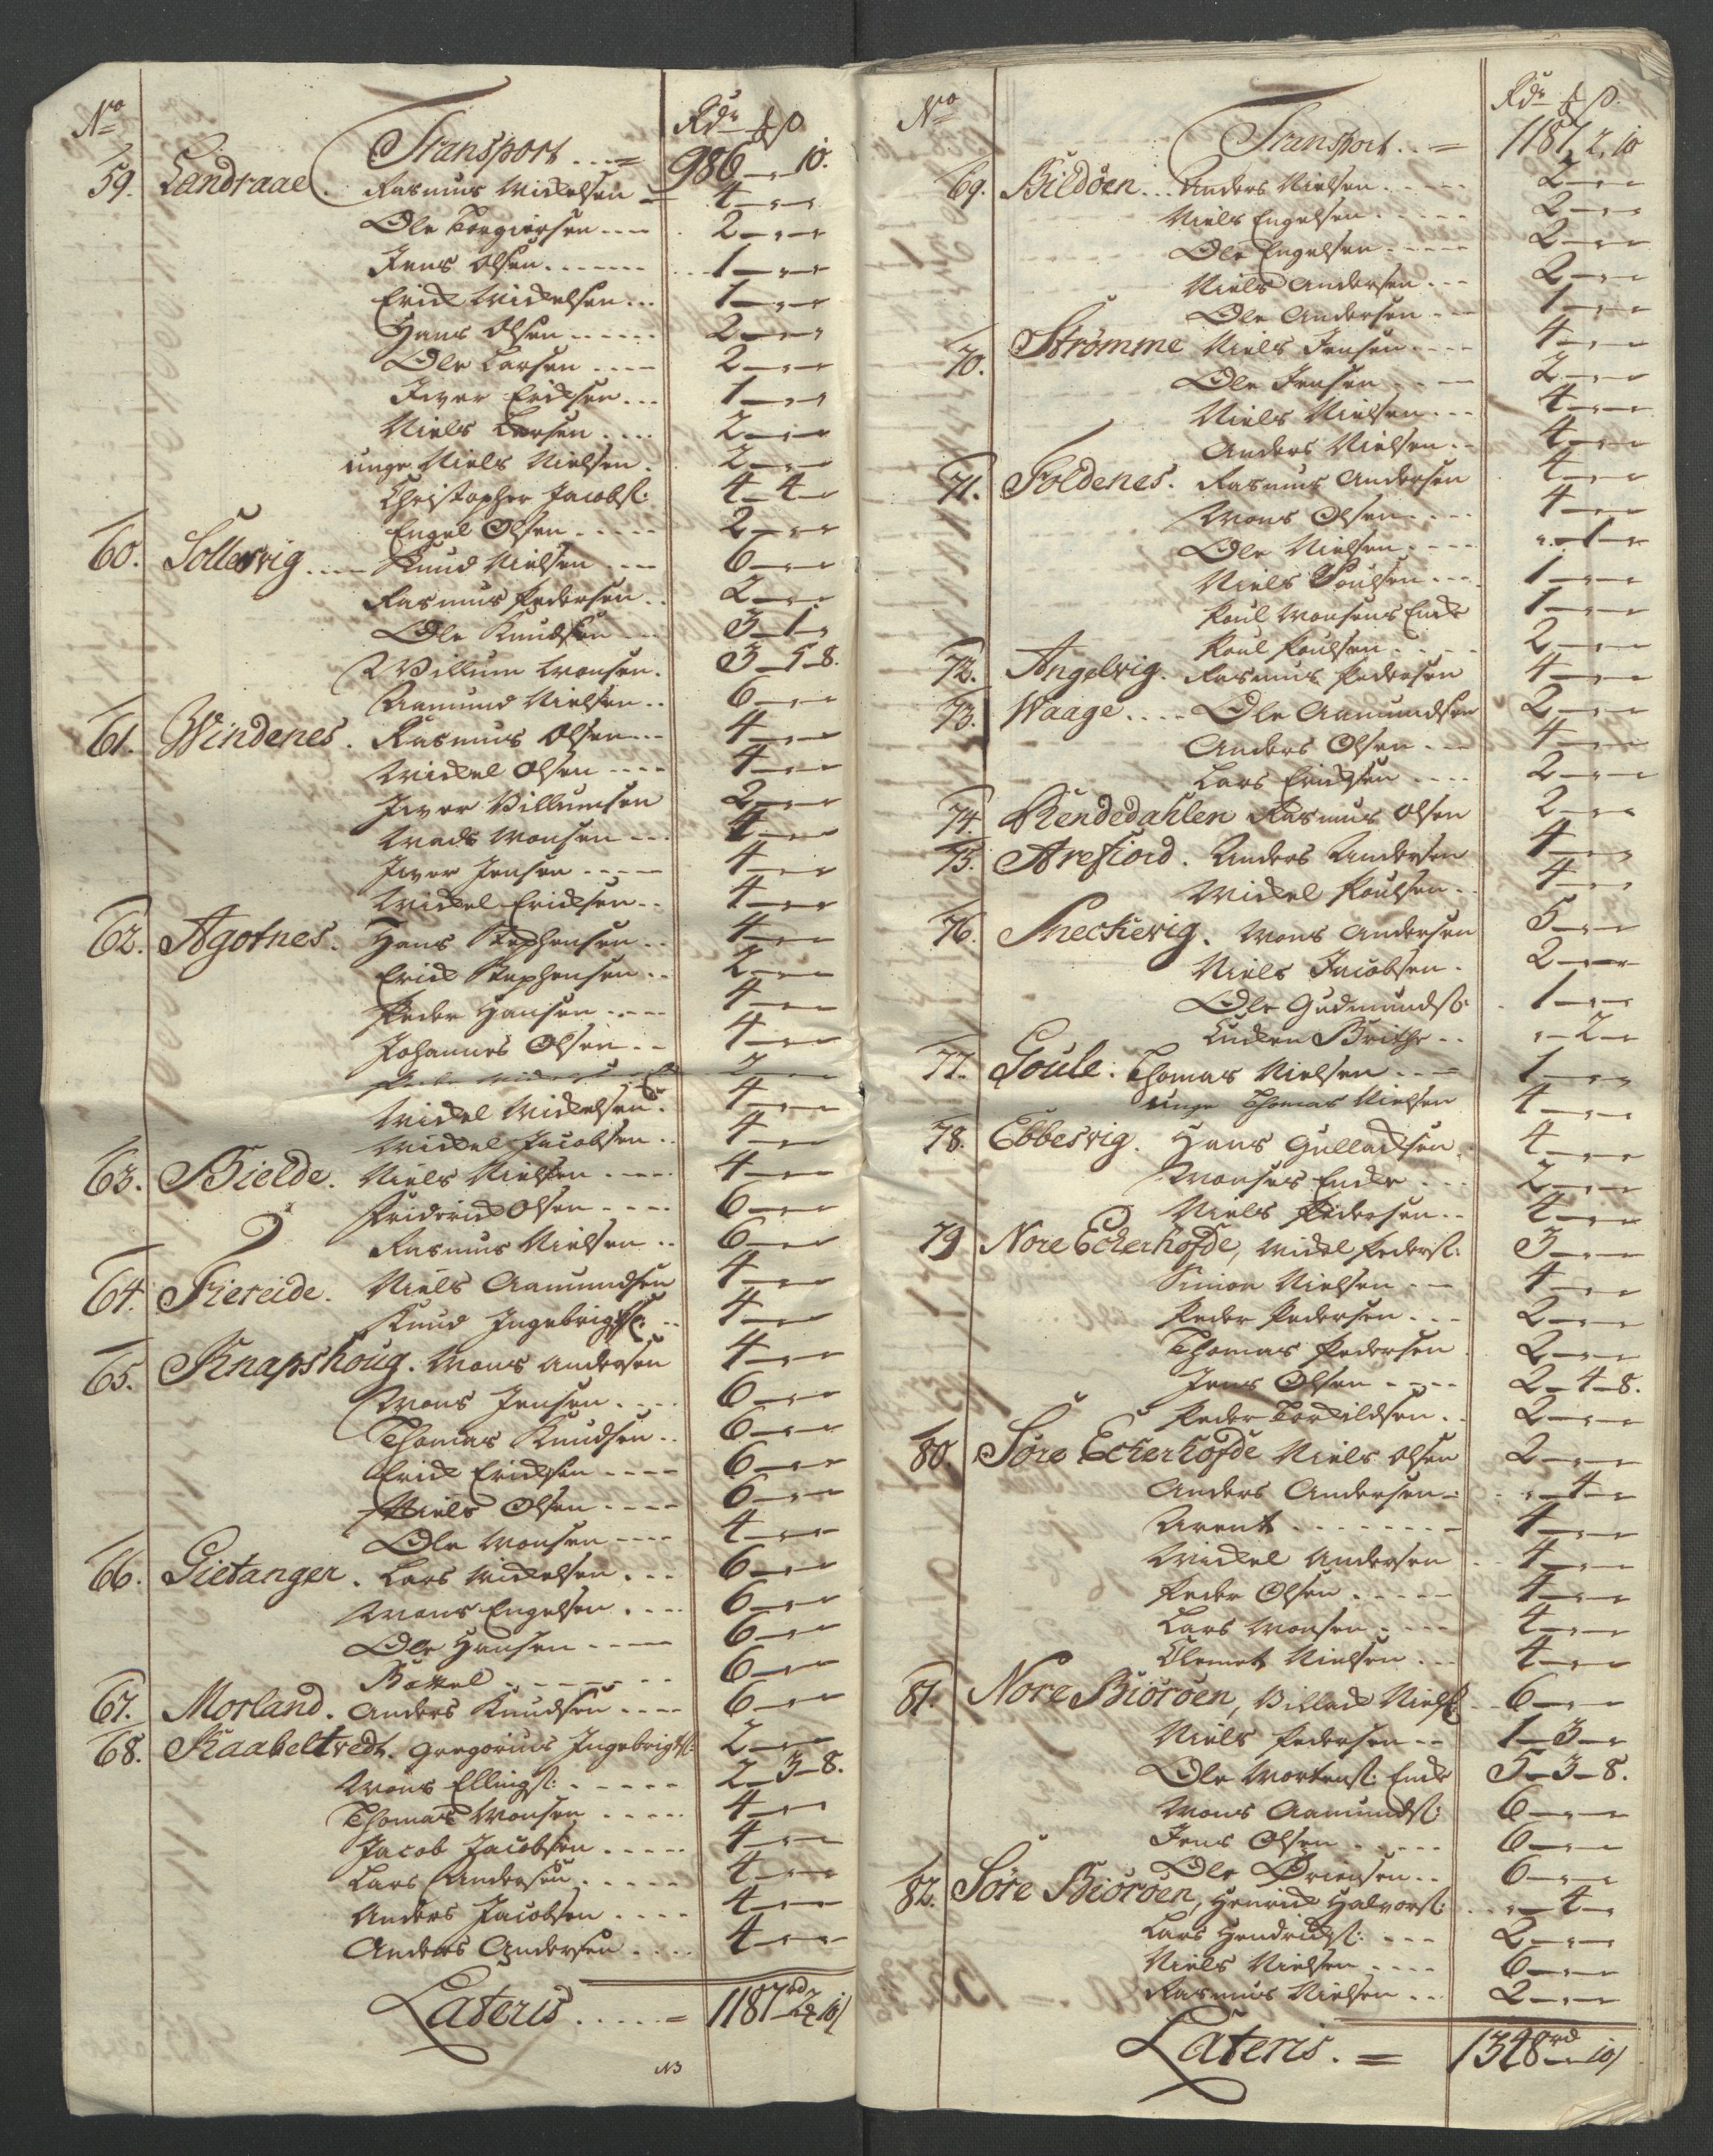 No Rdr ₰ ß
Transport . . . = 986 – " – 10.
59. Landraae. Rasmus Mickelsen – 4 – " – "
Ole Torgiersen – – – 2 – " – "
Jens Olsen . . . . . . . 1 – " – "
Erick Mickelsen . . . 1 – " – "
Hans Olsen . . . . . . 2 – " – "
Ole Larsen . . . . 2 – " – "
Iver Ericksen . . . 1 – " – "
Niels Larsen . . . . 2 – " – "
unge Niels Nielsen . 2 – " – "
Christopher Jacobs: 4 – 4 – "
Engel Olsen . . . . . 2 – " – "
60. Sollesvig . . . . Knud Nielsen . . . . 6 – " – "
Rasmus Pedersen . . 2 – " – "
Ole Knudsen . . . 3 – 1 – "
Villum Monsen . 3 – 5 – 8.
Aamund Nielsen . . 6 – " – "
61. Windenes. Rasmus Olsen . . . 4 – " – "
Mickel Olsen . . . . 4 – " – "
Iver Villumsen 2 – " – "
Mads Monsen . . . 4 – " – "
Iver Jensen . . . . . 4 – " – "
Mickel Ericksen . . 4 – " – "
62. Agotnes. Hans Stephensen . . 4 – " – "
Erick Stephensen . . 2 – " – "
Peder Hansen . . . . 4 – " – "
Johannes Olsen . . 4 – " – "
2 – " – "
Mickel Mickelsen . 4 – " – "
Mickel Jacobsen . . 4 – " – "
63. Bielde. Niels Nielsen . . . . 4 – " – "
Friderick Olsen . . . . 6 – " – "
Rasmus Nielsen . . 6 – " – "
64. Fiereide. Niels Aamundsen 4 – " – "
Knud Ingebrigts: . . 4 – " – "
65. Knapshoug. Mons Andersen 4 – " – "
Mons Jensen . . . . 6 – " – "
Thomas Knudsen . . 6 – " – "
Erick Ericksen . . . . 6 – " – "
Niels Olsen . . . . 6 – " – "
Ole Monsen . . . . 4 – " – "
66. Gietanger. Lars Mickelsen . . . 6 – " – "
Mons Engelsen . . . . 6 – " – "
Ole Hansen . . . . 6 – " – "
Bottel . . . . . . . 6 – " – "
67. Morland. Anders Knudsen . . . . 6 – " – "
68. Kaabeltvedt. Gregorius Ingebrigts: 2 – " – "
Mons Ellings: . . . . . 2 – 3 – 8.
Thomas Monsen . . . . . 4 – " – "
Jacob Jacobsen . . . . . 4 – " – "
Lars Andersen . . . . . 4 – " – "
Anders Jacobsen . . . . 4 – " – "
Anders Andersen . . . . 4 – " – "
Lateris . . . . . = 1187rd 2 ₰ 10 ß
No Rdr ₰ ß.
Transport . . = 1187, 2, 10
69. Bildöen . . . Anders Nielsen . . . . . 2 – " – "
Niels Engelsen . . . . . 2 – " – "
Ole Engelsen . . . . . 2 – " – "
Niels Andersen . . . 2 – " – "
Ole Andersen . . . 1 – " – "
70. Strömme Niels Jensen . . . . 4 – " – "
Ole Jensen . . . . 2 – " – "
Niels Nielsen . . . 4 – " – "
Anders Nielsen . . 4 – " – "
71. Foldenes. Rasmus Andersen 4 – " – "
Mons Olsen . . . . 4 – " – "
Ole Nielsen . . . . " – 1 – "
Niels Poulsen . . . 1 – " – "
Poul Monsens Encke 1 – " – "
Poul Poulsen . . . . 2 – " – "
72. Angelvig. Rasmus Pedersen 4 – " – "
73. Waage . . . . Ole Aamundsen 2 – " – "
Anders Olsen . . . 4 – " – "
Lars Ericksen . . . . 2 – " – "
74. Rendedahlen Rasmus Olsen 2 – " – "
75. Arefiord. Anders Andersen 4 – " – "
Mickel Poulsen . . 4 – " – "
76. Sneckevig. Mons Andersen 5 – " – "
Niels Jacobsen . 2 – " – "
Ole Gudmunds: 1 – " – "
Enken Brithe . . " – 2 – "
77. Goule. Thomas Nielsen . . . 1 – " – "
unge Thomas Nielsen 4 – " – "
78. Ebbesvig. Hans Gullacksen . 4 – " – "
Monses Encke . . . 2 – " – "
Niels Pedersen . . 4 – " – "
79 Nore Eckerhofde, Mickel Peders: 3 – " – "
Simon Nielsen . . . 4 – " – "
Peder Pedersen . . . 2 – " – "
Thomas Pedersen . 2 – " – "
Jens Olsen . . . . 2 – 4 – 8.
Peder Torkildsen . . 2 – " – "
80. Söre Eckerhofde Niels Olsen 2 – " – "
Anders Andersen . " – 4 – "
Arent . . . . . . . . 4 – " – "
Mickel Andersen 4 – " – "
Peder Olsen . . . . . 4 – " – "
Lars Monsen . . . . 4 – " – "
Clemet Nielsen . . . 4 – " – "
81. Nore Biöröen, Villack Niels: . . 6 – " – "
Niels Pedersen . . 1 – 3 – "
Ole Mortens: Encke 5 – 3 – 8.
Mons Aamunds: 6 – " – "
Jens Olsen . . . . . 6 – " – "
Ole Driensen . . 6 – " – "
82. Söre Biöröen, Henrick Halvors: . . " – 4 – "
Lars Hendricks: . . . 2 – " – "
Niels Nielsen . . . . 6 – " – "
Rasmus Nielsen . . 2 – " – "
Lateris . = 1348rd – " – 10 ß